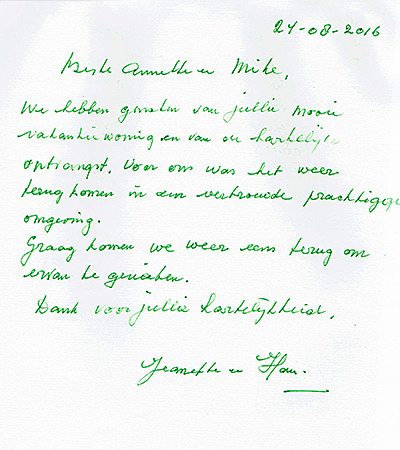 24-08-2016
Beste Annette en Mike,
We hebben genoten van jullie mooie
vakantie woning en van de hartelijke
ontvangst. Voor ons was het weer
terug komen in een vertrouwde prachtige
omgeving.
Graag komen we weer eens terug om
ervan te genieten.
Dank voor jullie hartelijkheid.
Jeanette en Han.